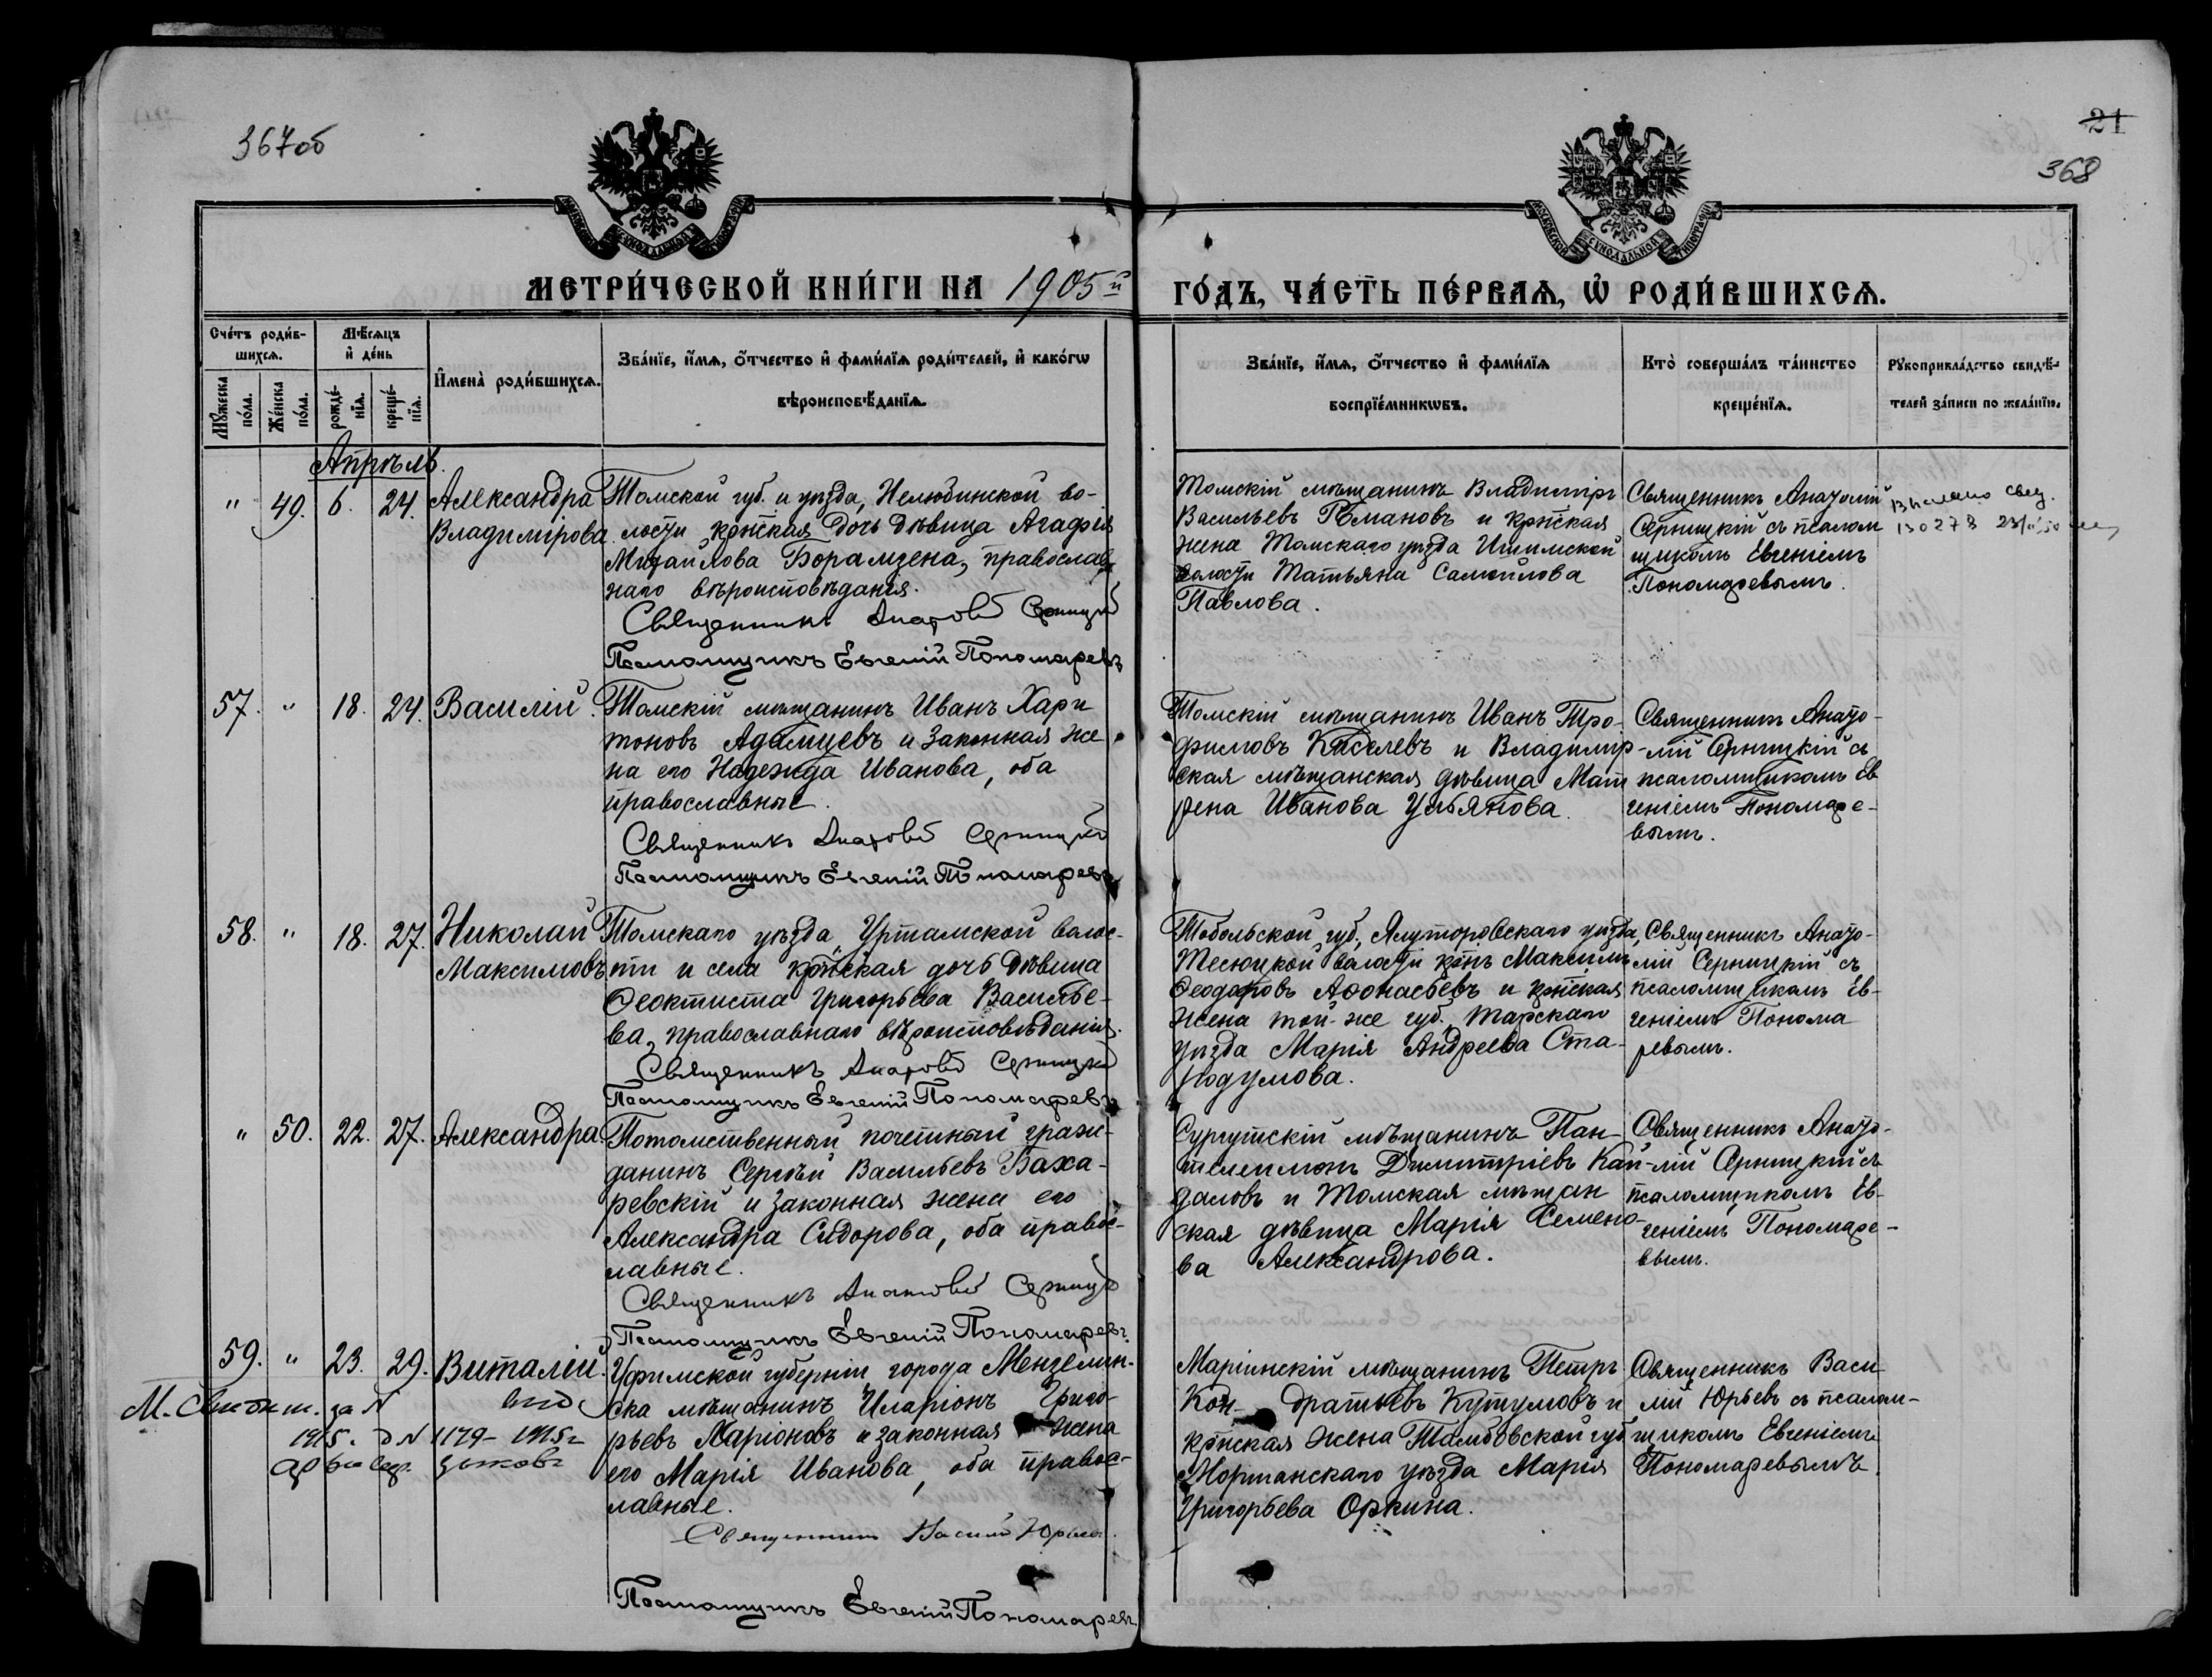 367об
21
368
МЕТРИ́ЧЕСКОЙ КНИ́ГИ НА 1905й
ГО́ДЪ, ЧА́СТЬ ПЕ́РВАЯ, Ѡ РОДИ́ВШИХСЯ.
Сче́тъ роди́в-
шихся.
Мꙋжеска по́ла.
Же́нска по́ла.
Мѣ́сяцъ
и҆ де́нь
рожде́-
нїя.
креще́-
нїя.
И҆мена̀ роди́вшихся.
Зва́нїе, и҆́мя, ѻ҆́тчество и҆ фами́лїя роди́телей, и҆ како́гѡ
вѣроисповѣ́данїя.
Зва́нїе, и҆́мя, ѻ҆́тчество и҆ фами́лїя
воспрїе́мникѡвъ.
Кто̀ соверша́лъ та́инство
креще́нїя.
Рꙋкоприкла́дство свидѣ́-
телей за́писи по жела́нїю.
Апрѣль.
" 49. 6. 24.
Александра
Владимірова
Томской губ. и уѣзда, Нелюбинской во-
лости кр҃нская дочь дѣвица Агафія
Михайлова Борамзена, православ-
наго вѣроисповѣданія.
Священникъ Анатолій Серницкій
Псаломщикъ Евгеній Пономаревъ
Томскій мѣщанинъ Владиміръ
Васильевъ Романовъ и кр҃нская
жена Томскаго уѣзда Ишимской
волости Татьяна Самойлова
Павлова.
Священникъ Анатолій
Серницкій съ псалом
щикомъ Евгеніемъ
Пономаревымъ.
57. " 18. 24.
Василій.
Томскій мѣщанинъ Иванъ Хари
тоновъ Адамцевъ и законная же
на его Надежда Иванова, оба
православные.
Священникъ Анатолій Серницкій
Псаломщикъ Евгеній Пономаревъ
Томскій мѣщанинъ Иванъ Тро-
фимовъ Киселевъ и Владимір-
ская мѣщанская дѣвица Мат
рена Иванова Ульянова.
Священникъ Анато-
лій Серницкій съ
псаломщикомъ Ев
геніемъ Пономаре-
вымъ.
58. " 18. 27.
Николай
Максимовъ
Томскаго уѣзда, Уртамской волос-
ти и села кр҃нская дочь дѣвица
Феоктиста Григорьева Василье-
ва, православнаго вѣроисповѣданія.
Священникъ Анатолій Серницкій
Псаломщикъ Евгеній Пономаревъ
Тобольской губ., Ялуторовскаго уѣзда,
волости кр҃нъ Максимъ
Феодоровъ Афонасьевъ и кр҃нская
жена той-же губ. Тарскаго
уѣзда Марія Андреева Ста-
родумова.
Священникъ Анато-
лій Серницкій съ
псаломщикомъ Ев-
геніемъ Понома
ревымъ.
" 50. 22. 27.
Александра
Потомственный почетный граж-
данинъ Сергѣй Васильевъ Баха-
ревскій и законная жена его
Александра Сидорова, оба правос-
лавные.
Священникъ Анатолій Серницкій
Псаломщикъ Евгеній Пономаревъ.
Сургутскій мѣщанинъ Пан-
телеимонъ Димитріевъ Кай-
даловъ и Томская мѣщан
ская дѣвица Марія Семено-
ва Александрова.
Священникъ Анато-
лій Серницкій съ
псаломщикомъ Ев-
геніемъ Пономаре-
вымъ.
59. " 23. 29.
Виталій.
1915. 1179
Уфимской губерніи города Мензелин-
ска мѣщанинъ Иларіонъ Григо-
рьевъ Ларіоновъ и законная жена
его Марія Иванова, оба правос-
лавные.
Священникъ Василій Юрьевъ.
Псаломщикъ Евгеній Пономаревъ
Маріинскій мѣщанинъ Петръ
Кон- дратьевъ Кутумовъ и
кр҃нская жена Тамбовской губ
Моршанскаго уѣзда Марія
Григорьева Оркина.
Священникъ Васи
лій Юрьевъ съ псалом-
щикомъ Евгеніемъ
Пономаревымъ.